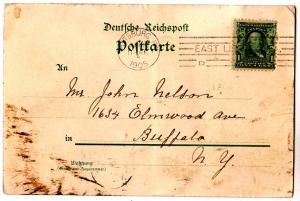 Deutsche Reichspost
Postkarte
1905
EAST
An
Mr. John Nelson
1634 Elmwood Ave
in Buffalo
N. Y.
Wohnung